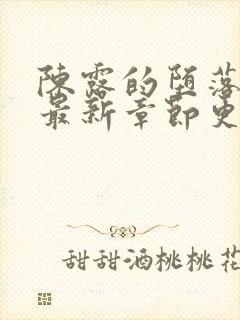 陈露的堕落
最新章节史
甜甜酒桃桃花